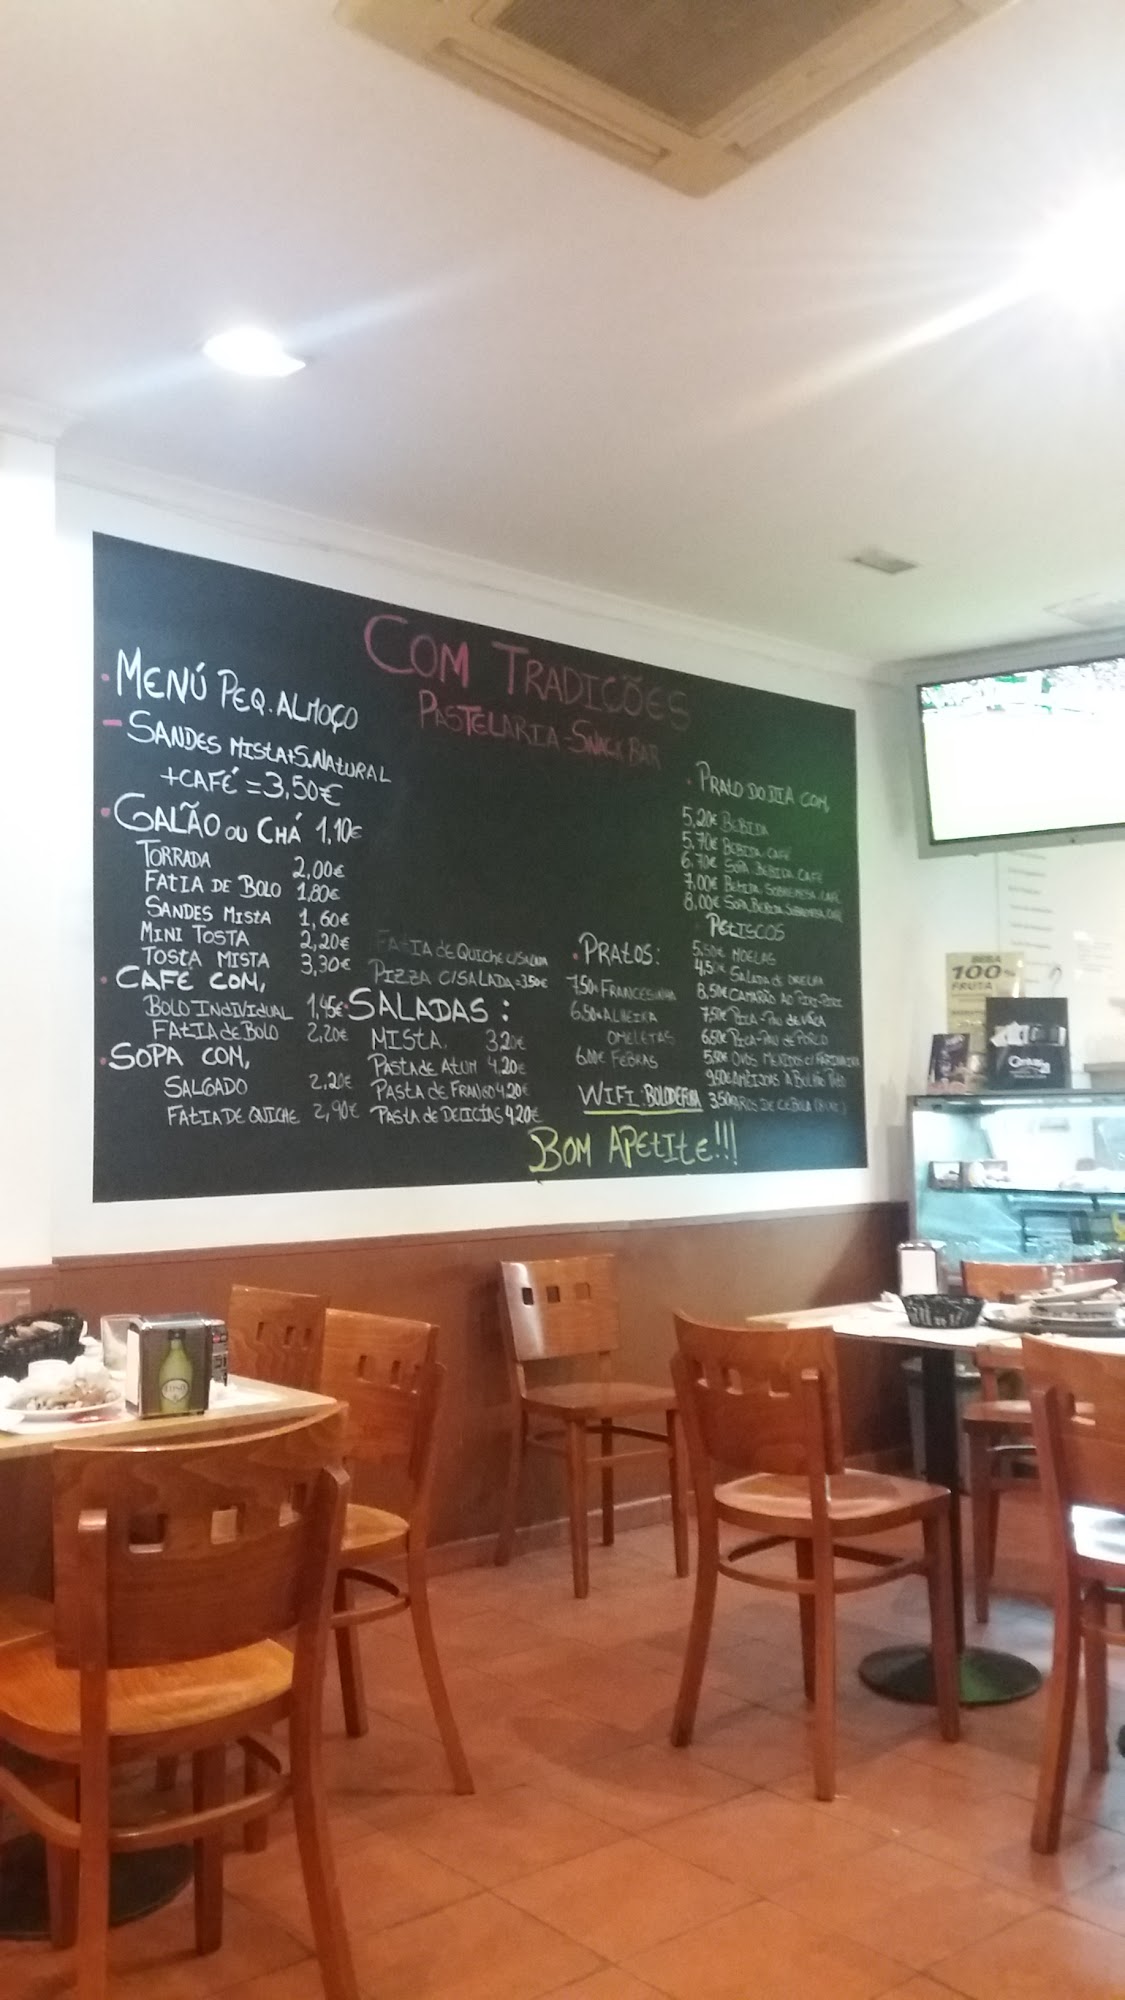 COM TRADIÇÕES
PASTELARIA-SNACK BAR
MENÚ PEQ. ALMOÇO
- SANDES MISTA+S.NATURAL
+CAFÉ = 3,50€
GALÃO OU CHÁ 1,10€
TORRADA 2,00€
FATIA DE BOLO 1,80€
SANDES MISTA 1,60€
MINI TOSTA 2,20€
TOSTA MISTA 3,30€
CAFÉ COM,
BOLO INDIVIDUAL 1,45€
FATIA de BOLO 2,20€
SOPA COM,
SALGADO 2,20€
FATIA DE QUICHE 2,90€
FATIA de QUICHE C/SALADA
PIZZA C/SALADA=3,50€
SALADAS:
MISTA 3,20€
PASTA de ATUM 4,20€
PASTA de FRANGO 4,20€
PASTA de DELICIAS 4,20€
PRATOS:
7,50€ FRANCESINHA
6,50€ ALHEIRA
OMELETAS
6,00€ FEBRAS
WIFI:
PRATO DO DIA COM,
5,20€ BEBIDA
5,70€ BEBIDA CAFÉ
6,70€ SOPA BEBIDA CAFÉ
7,00€ BEBIDA SOBREMESA CAFÉ
8,00€ SOPA BEBIDA SOBREMESA CAFÉ
PETISCOS
5,50€ MOELAS
4,50€ SALADA DE ORELHA
8,50€ CAMARÃO AO PIRI-PIRI
7,50€ PICA-PAU DE VACA
6,50€ PICA-PAU DE PORCO
5,50€ OVOS MEXIDOS C/FARINHEIRA
9,50€ AMÊIJOAS À BULHÃO PATO
3,50€ AROS DE CEBOLA
BOM APETITE!!!
BEBA
100%
FRUTA
Century 21